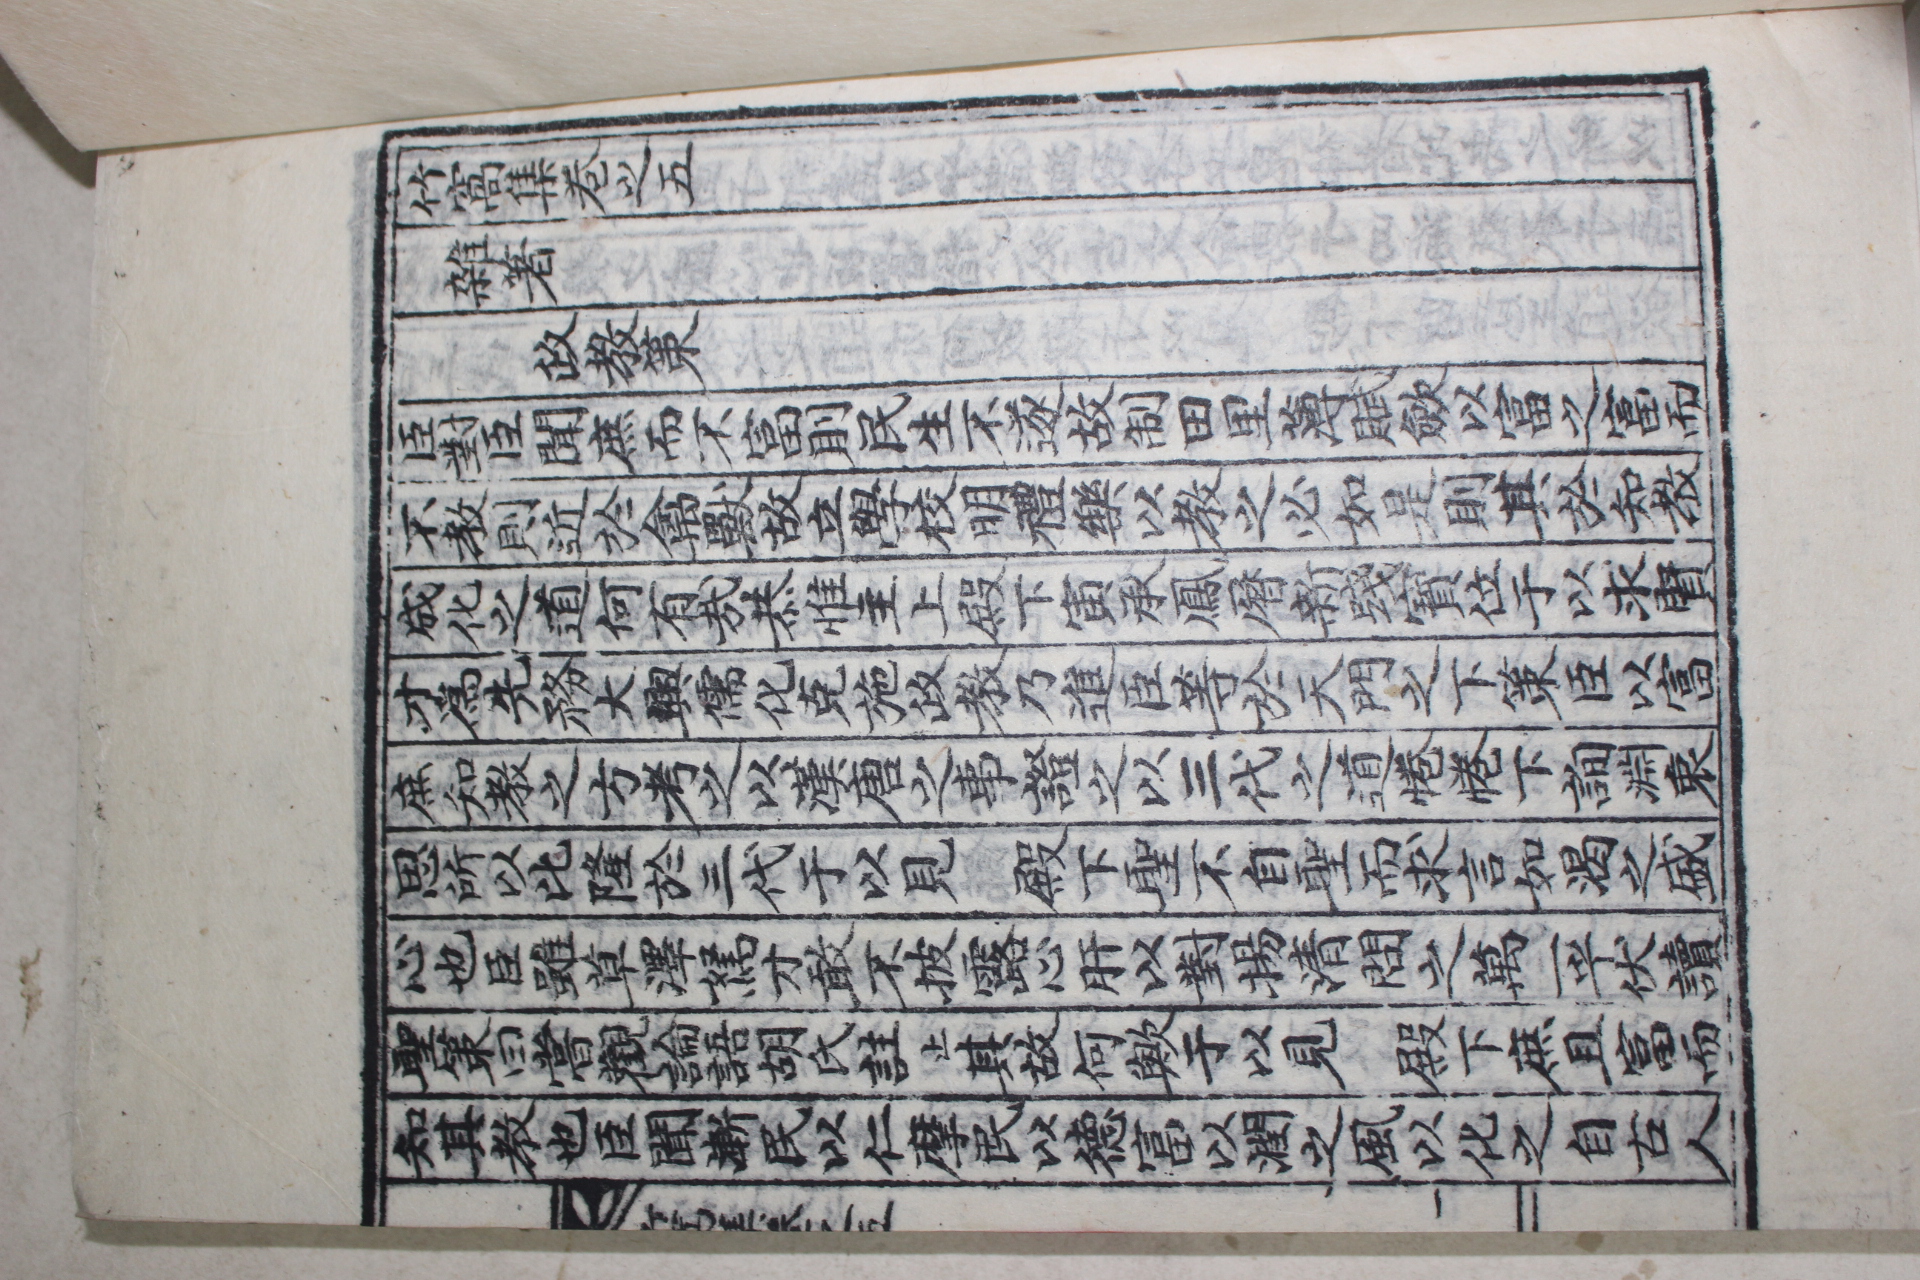 竹窩集卷之五
雜著
政教策
臣對臣聞庶而不富則民生不遂故制田里薄賦斂以富之富而
不教則近於禽獸故立學校明禮樂以教之必如是則其於知教
感化之道何有哉恭惟主上殿下寅承鳳曆新踐寶位于以求賢
才爲先務大興儒化克施政教乃進臣等於天門之下策臣以富
庶知教之方考之以漢唐之事證之以三代之道惓惓下詢淵衷
思所以比隆於三代于以見 殿下聖不自聖而求言如渴之盛
心也臣雖草澤慵才敢不披露心肝以對揚淸問之萬一乎伏讀
聖策曰嘗觀論語胡氏註止其故何歟于以見 殿下庶且富而
知其教也臣聞漸民以仁摩民以德富以潤之風以化之自古人
竹窩集卷之五 一